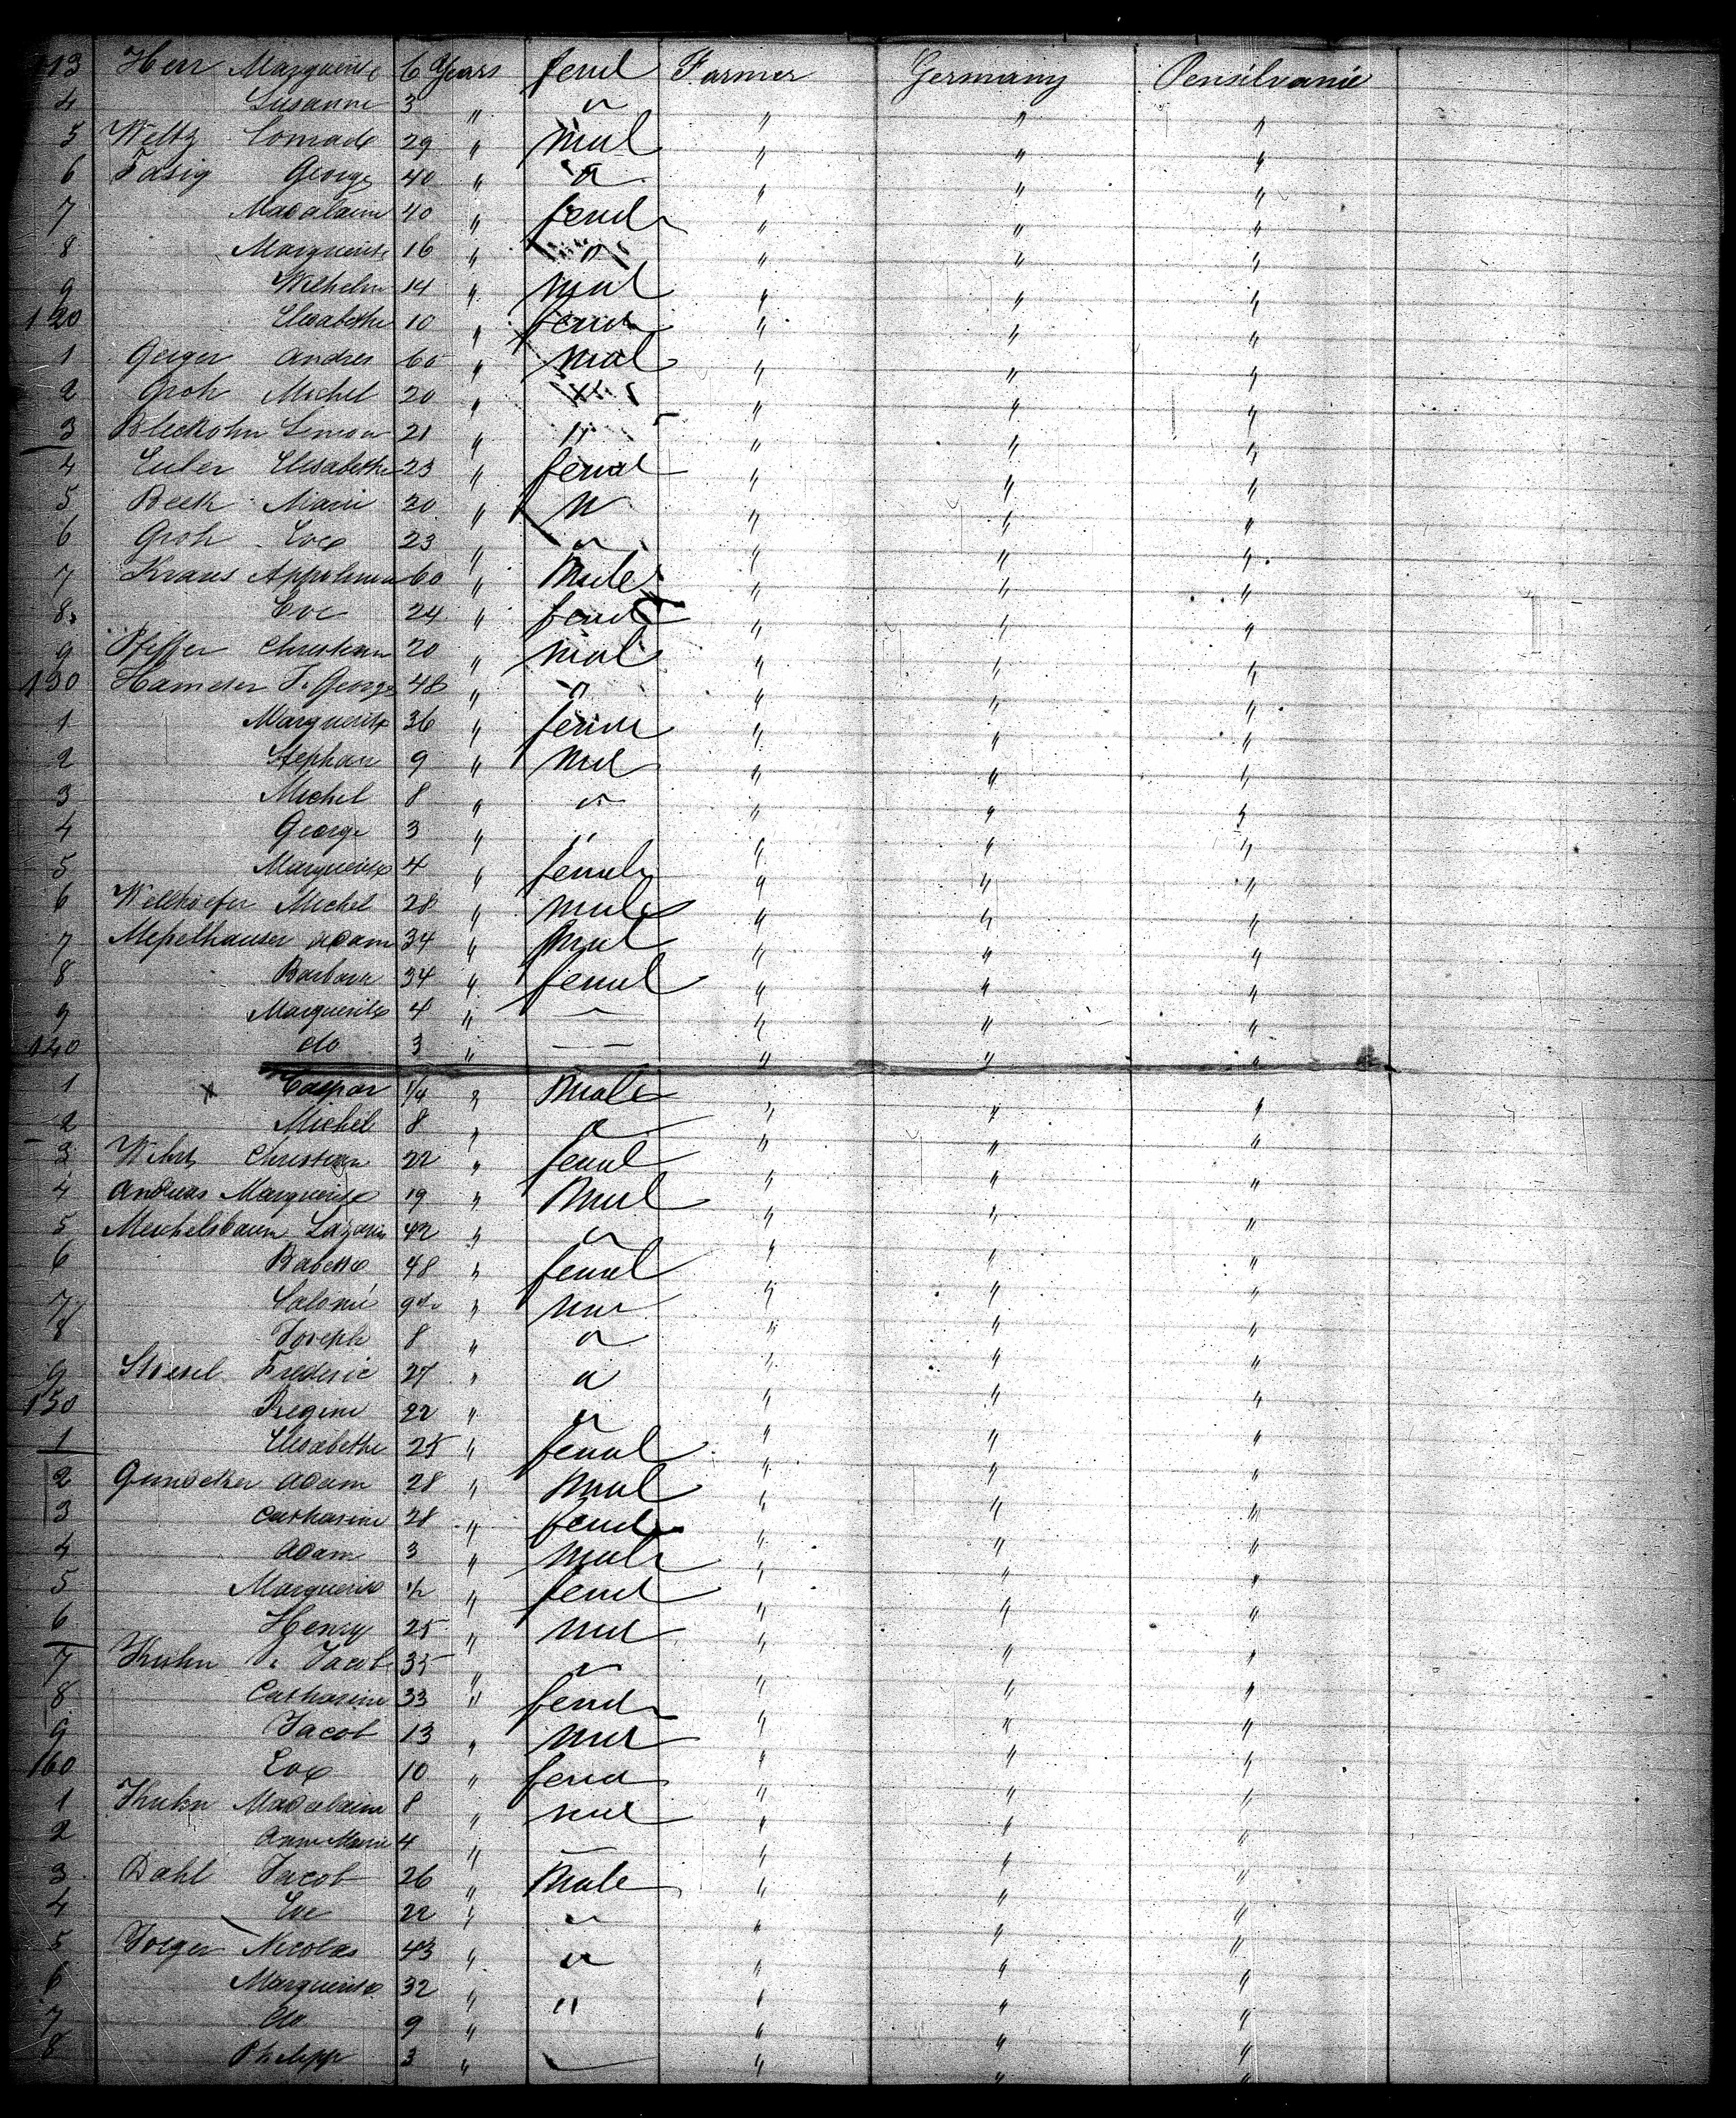 113 Herr Marguerite 6 Years femal Farmer Germany Pensilvanie
4 Susanne 3 " " " " "
5 Weltz Conrade 29 " mal " " "
6 Fasig George 40 " " " " "
7 Madalaine 40 " femal " " "
8 Marguerite 16 " " " " "
9 Wilhelm 14 " mal " " "
120 Elisabethe 10 " femal " " "
1 Geiger Andres 60 " mal " " "
2 Groh Michel 20 " " " " "
3 Bleckohn Simon 21 " " " " "
4 Euler Elisabethe 23 " femal " " "
5 Beeth Marie 30 " " " " "
6 Groh Eve 23 " " " " "
7 Kraus Appolinna 60 " Male " " "
8 Eve 24 " femal " " "
9 Pfeffer Christian 20 " mal " " "
130 Hameter J. George 48 " " " " "
1 Marguerite 36 " femal " " "
2 Stephan 9 " mal " " "
3 Michel 8 " " " " "
4 George 3 " " " " "
5 Marguerite 4 " female " " "
6 Wellhoefer Michel 28 " male " " "
7 Meßelhauser Adam 34 " mal " " "
8 Barbara 34 " femal " " "
9 Marguerite 4 " " " " "
140 do 3 " — " " "
1 x Caspar 1/4 " Male " " "
2 Michel 8 " " " " "
3 Wihrt Christian 22 " femal " " "
4 Andreas Marguerite 19 " Mal " " "
5 Meichelsbaum Lazarus 42 " " " " "
6 Babette 48 " femal " " "
7 Salomé " mal " " "
8 Joseph 8 " " " " "
9 Stoesel Frederic 27 " " " " "
150 Regine 22 " " " " "
1 Elisabethe 25 " femal " " "
2 Gundeker Adam 28 " mal " " "
3 Catharine 28 " femal " " "
4 Adam 3 " male " " "
5 Marguerite 1/2 " femal " " "
6 Henry 25 " mal " " "
7 Kuhn Jacob 35 " " " " "
8 Catharine 33 " femal " " "
9 Jacob 13 " mal " " "
160 Eve 10 " femal " " "
1 Kuhn Madalaine 8 " mal " " "
2 Anne Marie 4 " " " " "
3 Dahl Jacob 26 " Male " " "
4 Eve 22 " " " " "
5 Joeger Nicolas 43 " " " " "
6 Marguerite 32 " " " " "
7 do 9 " " " "
8 Philipp 3 " " " " "